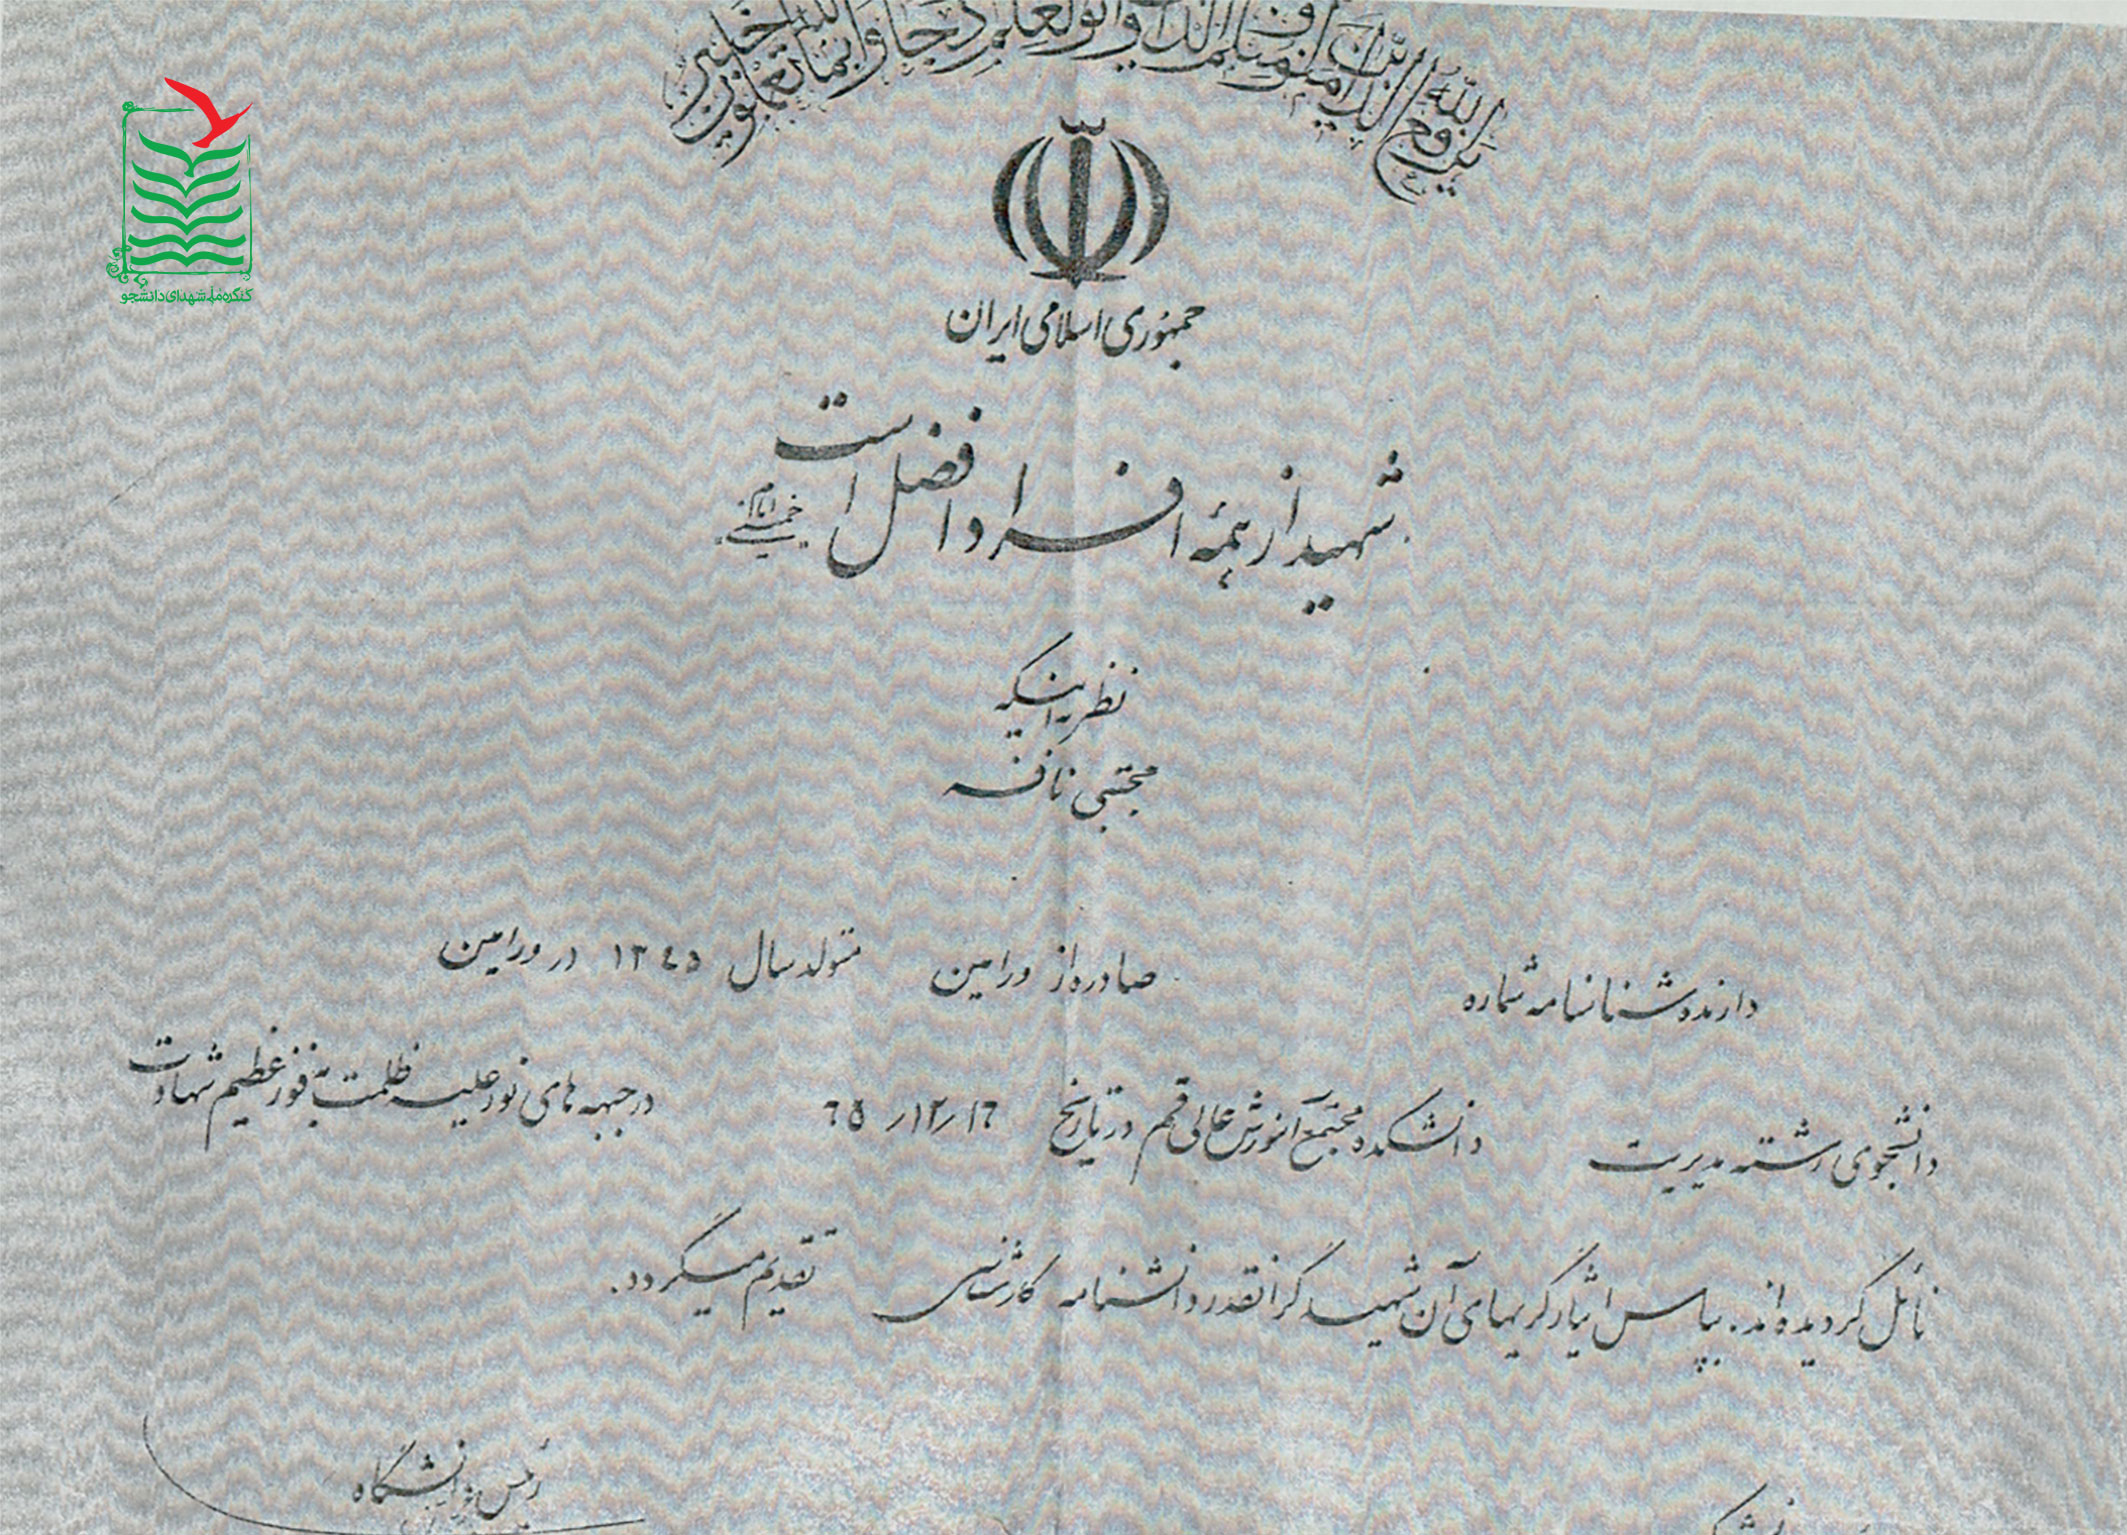 یرفع الله الذین امنو منکم والذین اوتو العلم درجات والله بما تعملون خبیر
کنگره ملی شهدای دانشجو
جمهوری اسلامی ایران
شهید از همه افراد افضل است
امام خمینی
نظر به اینکه
مجتبی نافه
دارنده شناسنامه شماره صادره از ورامین متولد سال ۱۳٤۵ در ورامین
دانشجوی رشته مدیریت دانشکده مجتمع آموزش عالی قم در تاریخ ۱٦/۱۲/٦۵ در جبهه های نور علیه ظلمت به فوز عظیم شهادت
نائل گردیده‌اند. بپاس ایثارگریهای آن شهید گرانقدر دانشنامه کارشناسی تقدیم میگردد.
رئیس دانشگاه